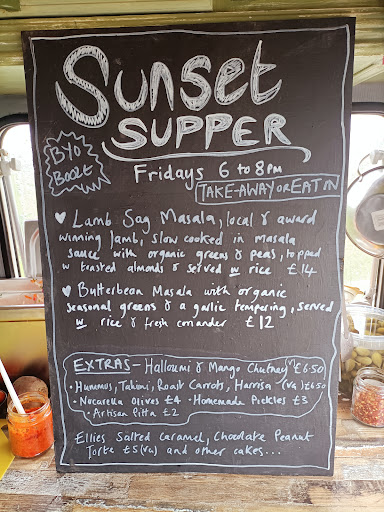 Sunset
SUPPER
BYO
Booze
Fridays 6 to 8PM
TAKE-AWAY OR EAT IN
♥ Lamb Sag Masala, local & award
winning lamb, slow cooked in masala
sauce with organic greens & peas, topped
w toasted almonds & served w rice £14
♥ Butterbean Masala with organic
seasonal greens & a garlic tempering, served
w rice & fresh coriander £12
EXTRAS - Halloumi & Mango Chutney (v) £6.50
· Hummus, Tahini, Roast Carrots, Harrisa (va) £6.50
· Nocarella Olives £4 · Homemade Pickles £3
· Artisan Pitta £2
Ellies Salted Caramel, Chocolate Peanut
Torte £5 (va) and other cakes...